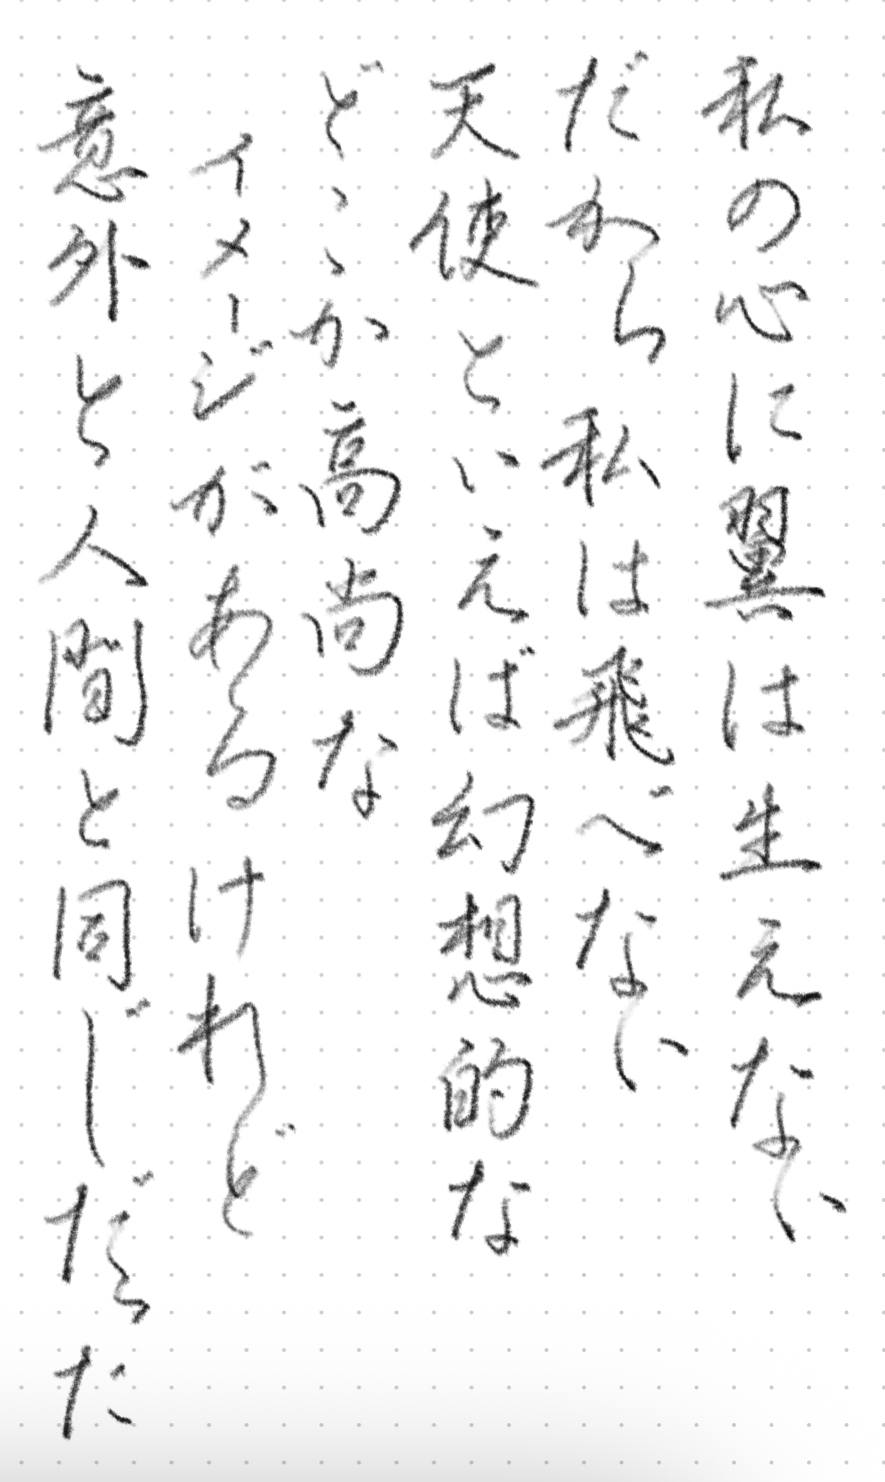 私の心に翼は生えない
だから私は飛べない
天使といえば幻想的な
どこか高尚な
イメージがあるけれど
意外と人間と同じだった